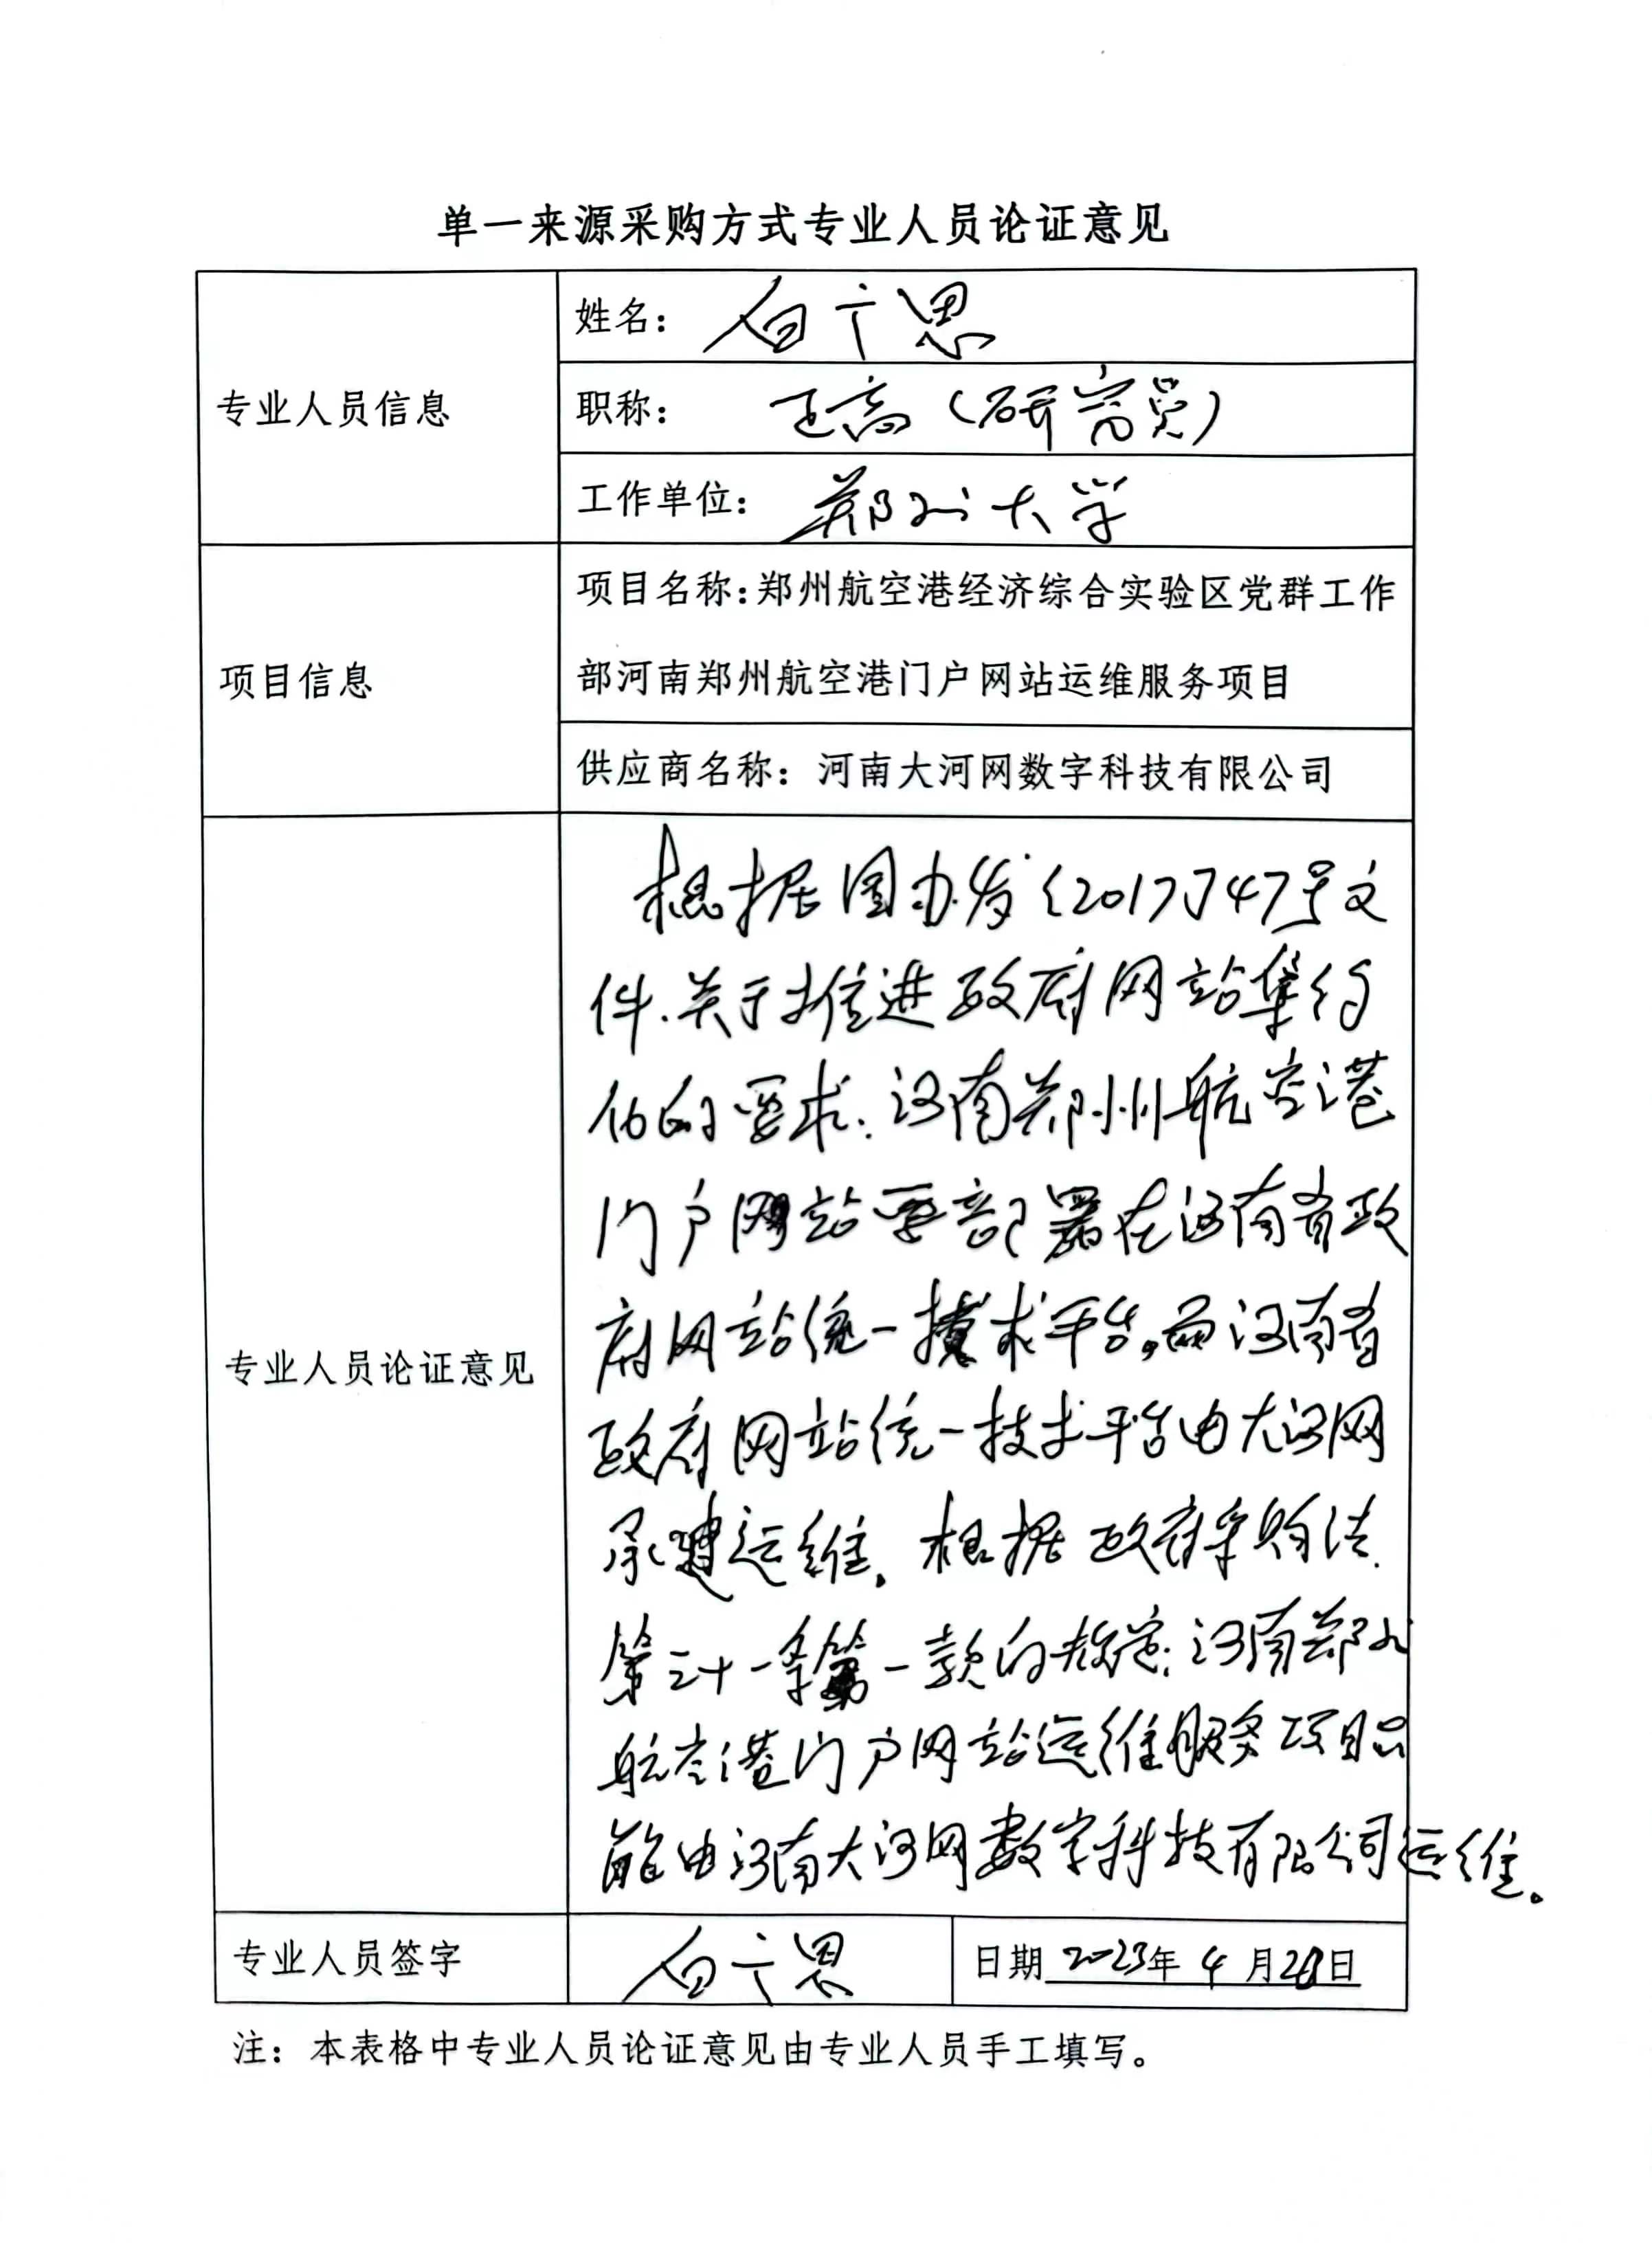 单一来源采购方式专业人员论证意见
专业人员信息
姓名：白广思
职称：正高（研究员）
工作单位：郑州大学
项目信息
项目名称：郑州航空港经济综合实验区党群工作
部河南郑州航空港门户网站运维服务项目
供应商名称：河南大河网数字科技有限公司
专业人员论证意见
根据国办发〔2017〕47号文
件.关于推进政府网站集约
化的要求.河南郑州航空港
门户网站要部署在河南省政
府网站统一技术平台。而河南省
政府网站统一技术平台由大河网
承建运维。根据政府采购法.
第三十一条第一款的规定.河南郑州
航空港门户网站运维服务项目只
能由河南大河网数字科技有限公司运维。
专业人员签字
白广思
日期 2023年 4 月 日
注：本表格中专业人员论证意见由专业人员手工填写。